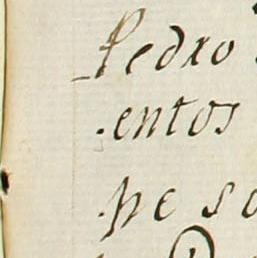 Pedro
.entos
.pe so